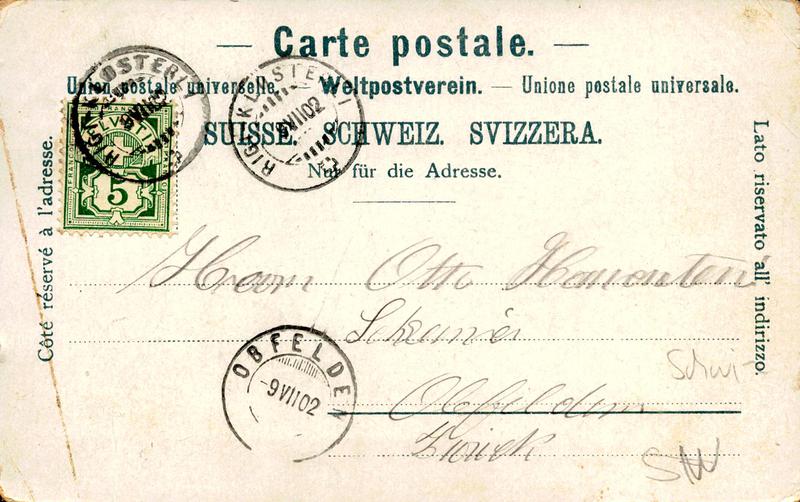 — Carte postale. —
Union postale universelle. — Weltpostverein. — Unione postale universale.
SUISSE. SCHWEIZ. SVIZZERA.
Nur für die Adresse.
Côté réservé à l'adresse.
Lato riservato all' indirizzo.
RIGI-KLÖSTERLI
9 VII 02
RIGI-KLÖSTERLI
9 VII 02
FRANCO
HELVETIA
5
Herrn Otto
Obfelden
Zürich
OBFELDEN
-9 VII 02